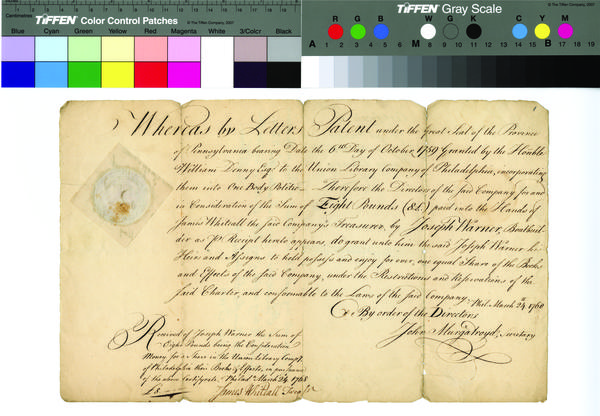 Centimetres
TIFFEN Color Control Patches
© The Tiffen Company, 2007
Blue Cyan Green Yellow Red Magenta White 3/Color Black
TIFFEN Gray Scale
© The Tiffen Company, 2007
R G B W G K C Y M
A 1 2 3 4 5 6 M 8 9 10 11 12 13 14 15 B 17 18 19
Whereas by Letters Patent under the Great Seal of the Province
of Pennsylvania bearing Date the 6th Day of October, 1759 Granted by the Honble
William Denny Esqr. to the Union Library Company of Philadelphia, incorporating
them into One Body Politic — Therefore the Directors of the said Company for and
in Consideration of the Sum of Eight Pounds (8£) paid into the Hands of
James Whiteall the said Company's Treasurer, by Joseph Warner, Boatbuil-
der as Pr. Receipt hereto appears, do grant unto him the said Joseph Warner his
Heirs and Assigns to hold possess and enjoy for ever, one equal Share of the Books
and Effects of the said Company, under the Restrictions and Reservations of the
said Charter, and conformable to the Laws of the said Company. Phil. March 24, 1768
By order of the Directors
John Murgatroyd, Secretary
Received of Joseph Warner the Sum of
Eight Pounds being the Consideration
Money for a Share in the Union Library Compy.
of Philadelphia their Books & Effects, in pursuance
of the above Certificate. Philad. March 24, 1768
£8 James Whiteall Treasr.